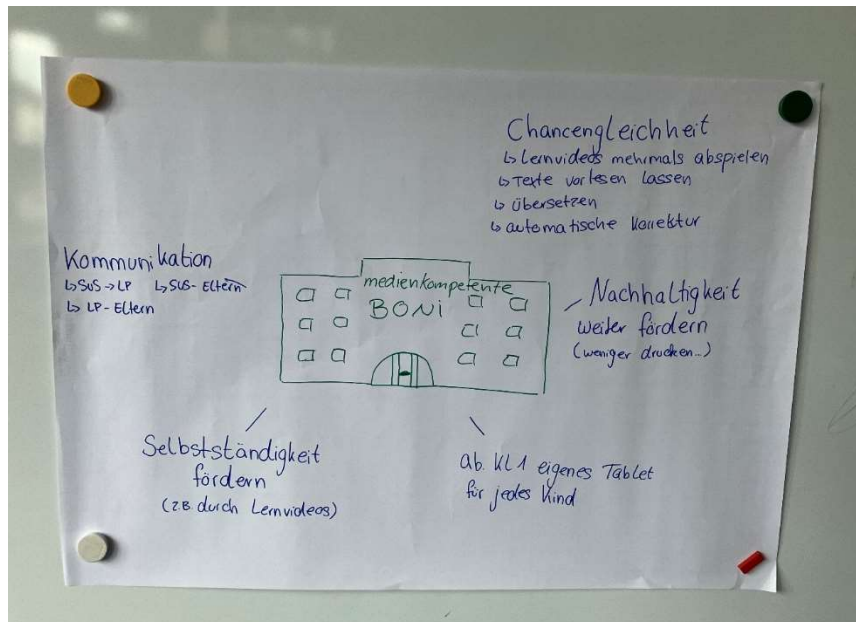 Chancengleichheit
↳ Lernvideos mehrmals abspielen
↳ Texte vorlesen lassen
↳ übersetzen
↳ automatische Korrektur
Kommunikation
↳ SuS → LP ↳ SuS - Eltern
↳ LP - Eltern
medienkompetente
BONi
Nachhaltigkeit
weiter fördern
(weniger drucken...)
Selbstständigkeit
fördern
(z.B. durch Lernvideos)
ab KL 1 eigenes Tablet
für jedes Kind